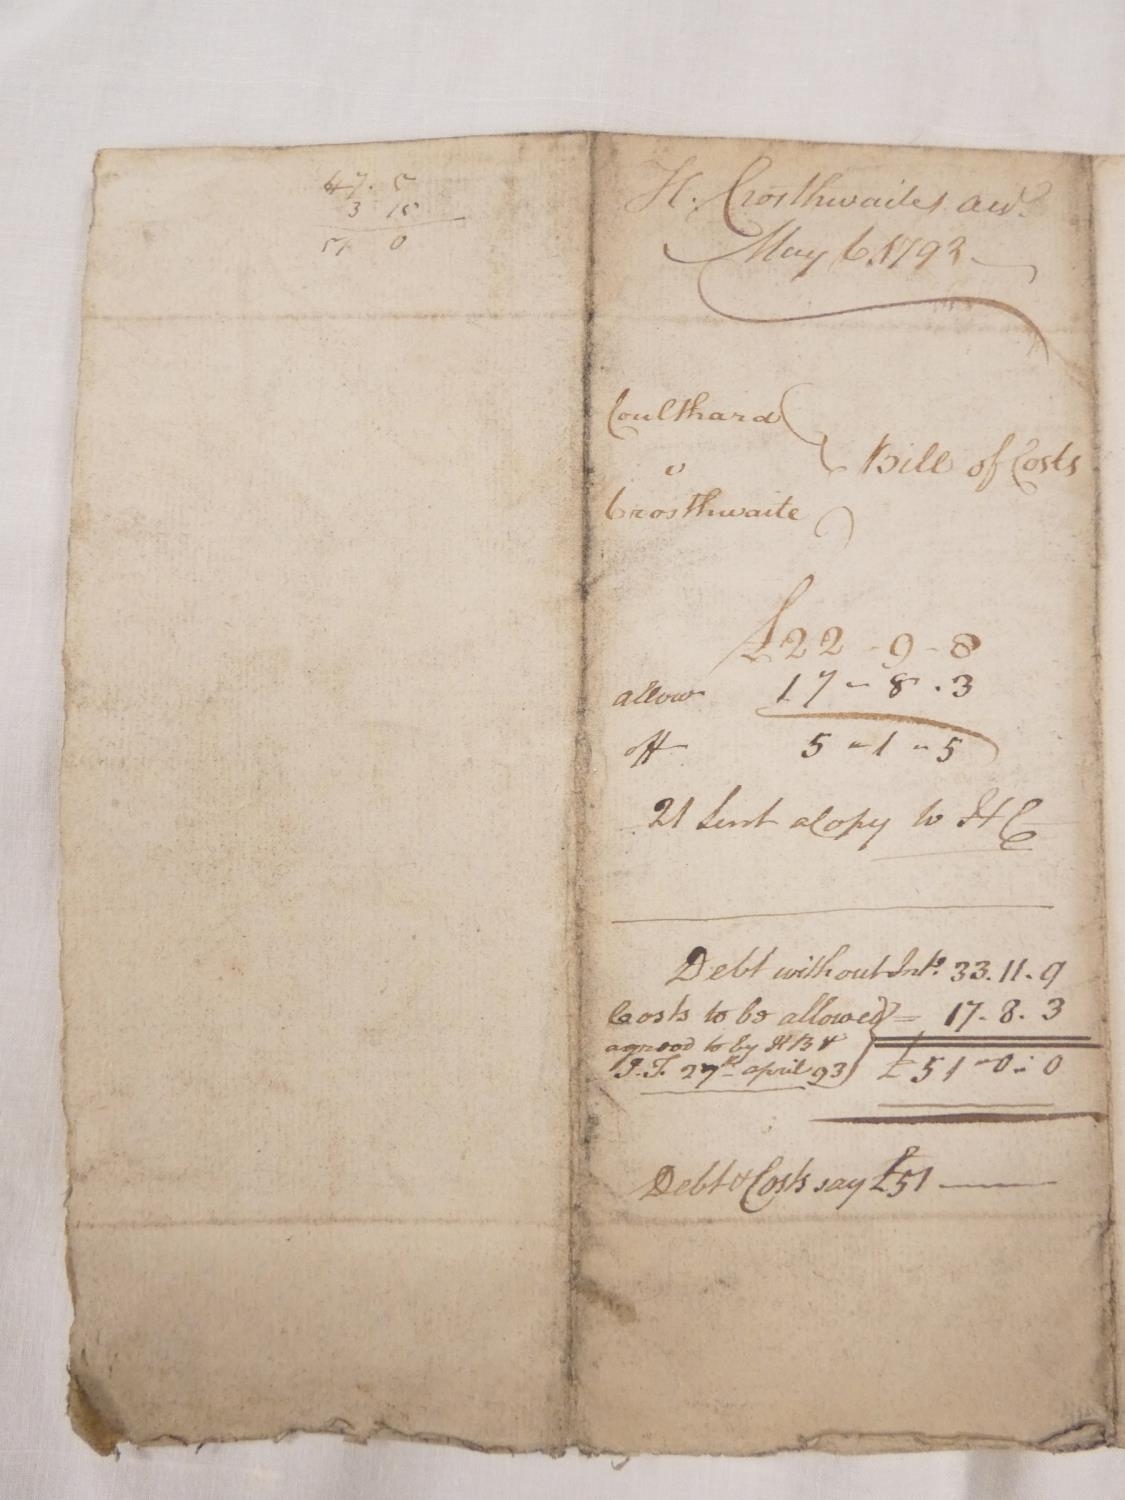 47. 5
3 15
51 0
H. Crosthwaites acct.
May 6. 1793
Coulthard
v
Crosthwaite
Bill of Costs
£22 - 9 - 8
allow 17 - 8 . 3
off 5 - 1 - 5
21 Sent a Copy to HC
Debt without Int. 33. 11. 9
Costs to be allowed = 17. 8. 3
agreed to by HB &
J. T. 27th april 93 £51 - 0 : 0
Debt & Costs say £51